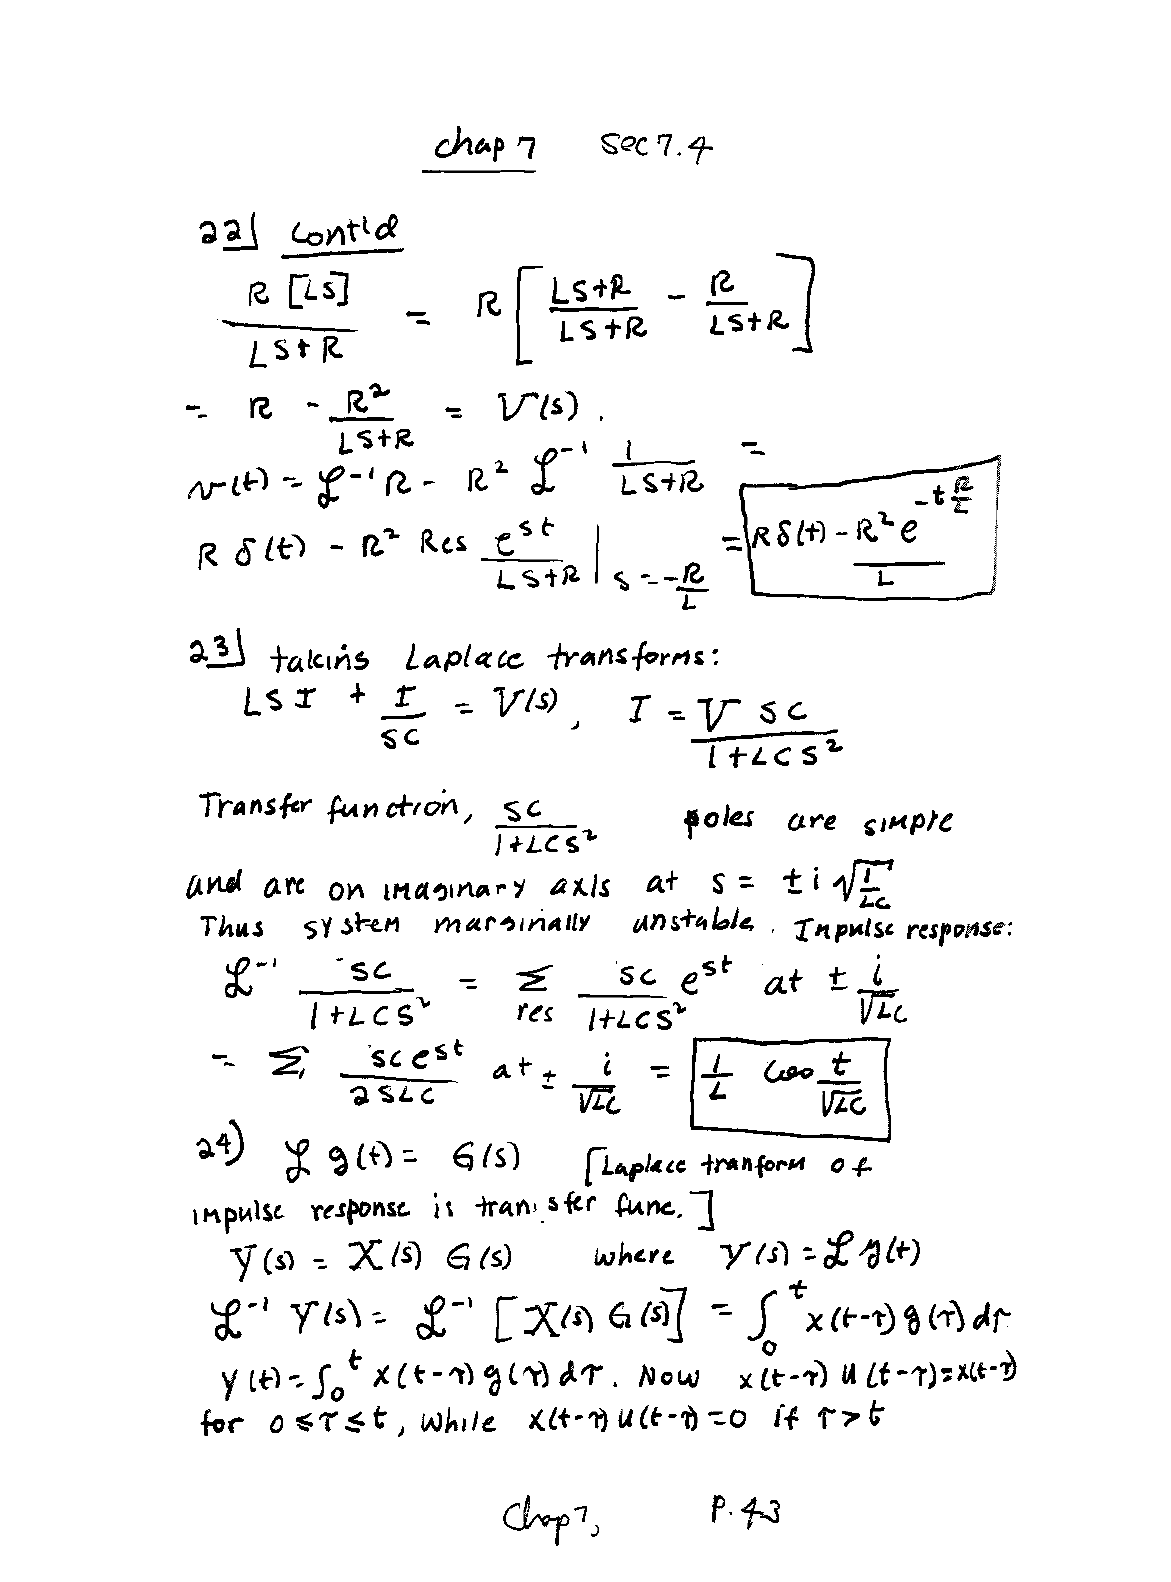 chap 7 sec 7.4
22] cont'd
R [LS] / LS+R = R [ LS+R / LS+R - R / LS+R ]
= R - R² / LS+R = V(s).
v(t) = ℒ⁻¹ R - R² ℒ⁻¹ 1 / LS+R =
R δ(t) - R² Res e^st / LS+R | s = -R/L = R δ(t) - R² e^(-t R/L) / L
23] taking Laplace transforms:
LSI + I / SC = V(s), I = V SC / 1+LCS²
Transfer function, SC / 1+LCS² poles are simple
and are on imaginary axis at s = ± i √(1/LC)
Thus system marginally unstable. Impulse response:
ℒ⁻¹ SC / 1+LCS² = Σ res SC / 1+LCS² e^st at ± i / √LC
= Σ SC e^st / 2SLC at ± i / √LC = 1/L cos t / √LC
24) ℒ g(t) = G(s) [Laplace tranform of
impulse response is transfer func.]
Y(s) = X(s) G(s) where Y(s) = ℒ y(t)
ℒ⁻¹ Y(s) = ℒ⁻¹ [X(s) G(s)] = ∫₀ᵗ x(t-τ) g(τ) dτ
y(t) = ∫₀ᵗ x(t-τ) g(τ) dτ. Now x(t-τ) u(t-τ) = x(t-τ)
for 0 ≤ τ ≤ t, while x(t-τ) u(t-τ) = 0 if τ > t
Chap 7, P. 43